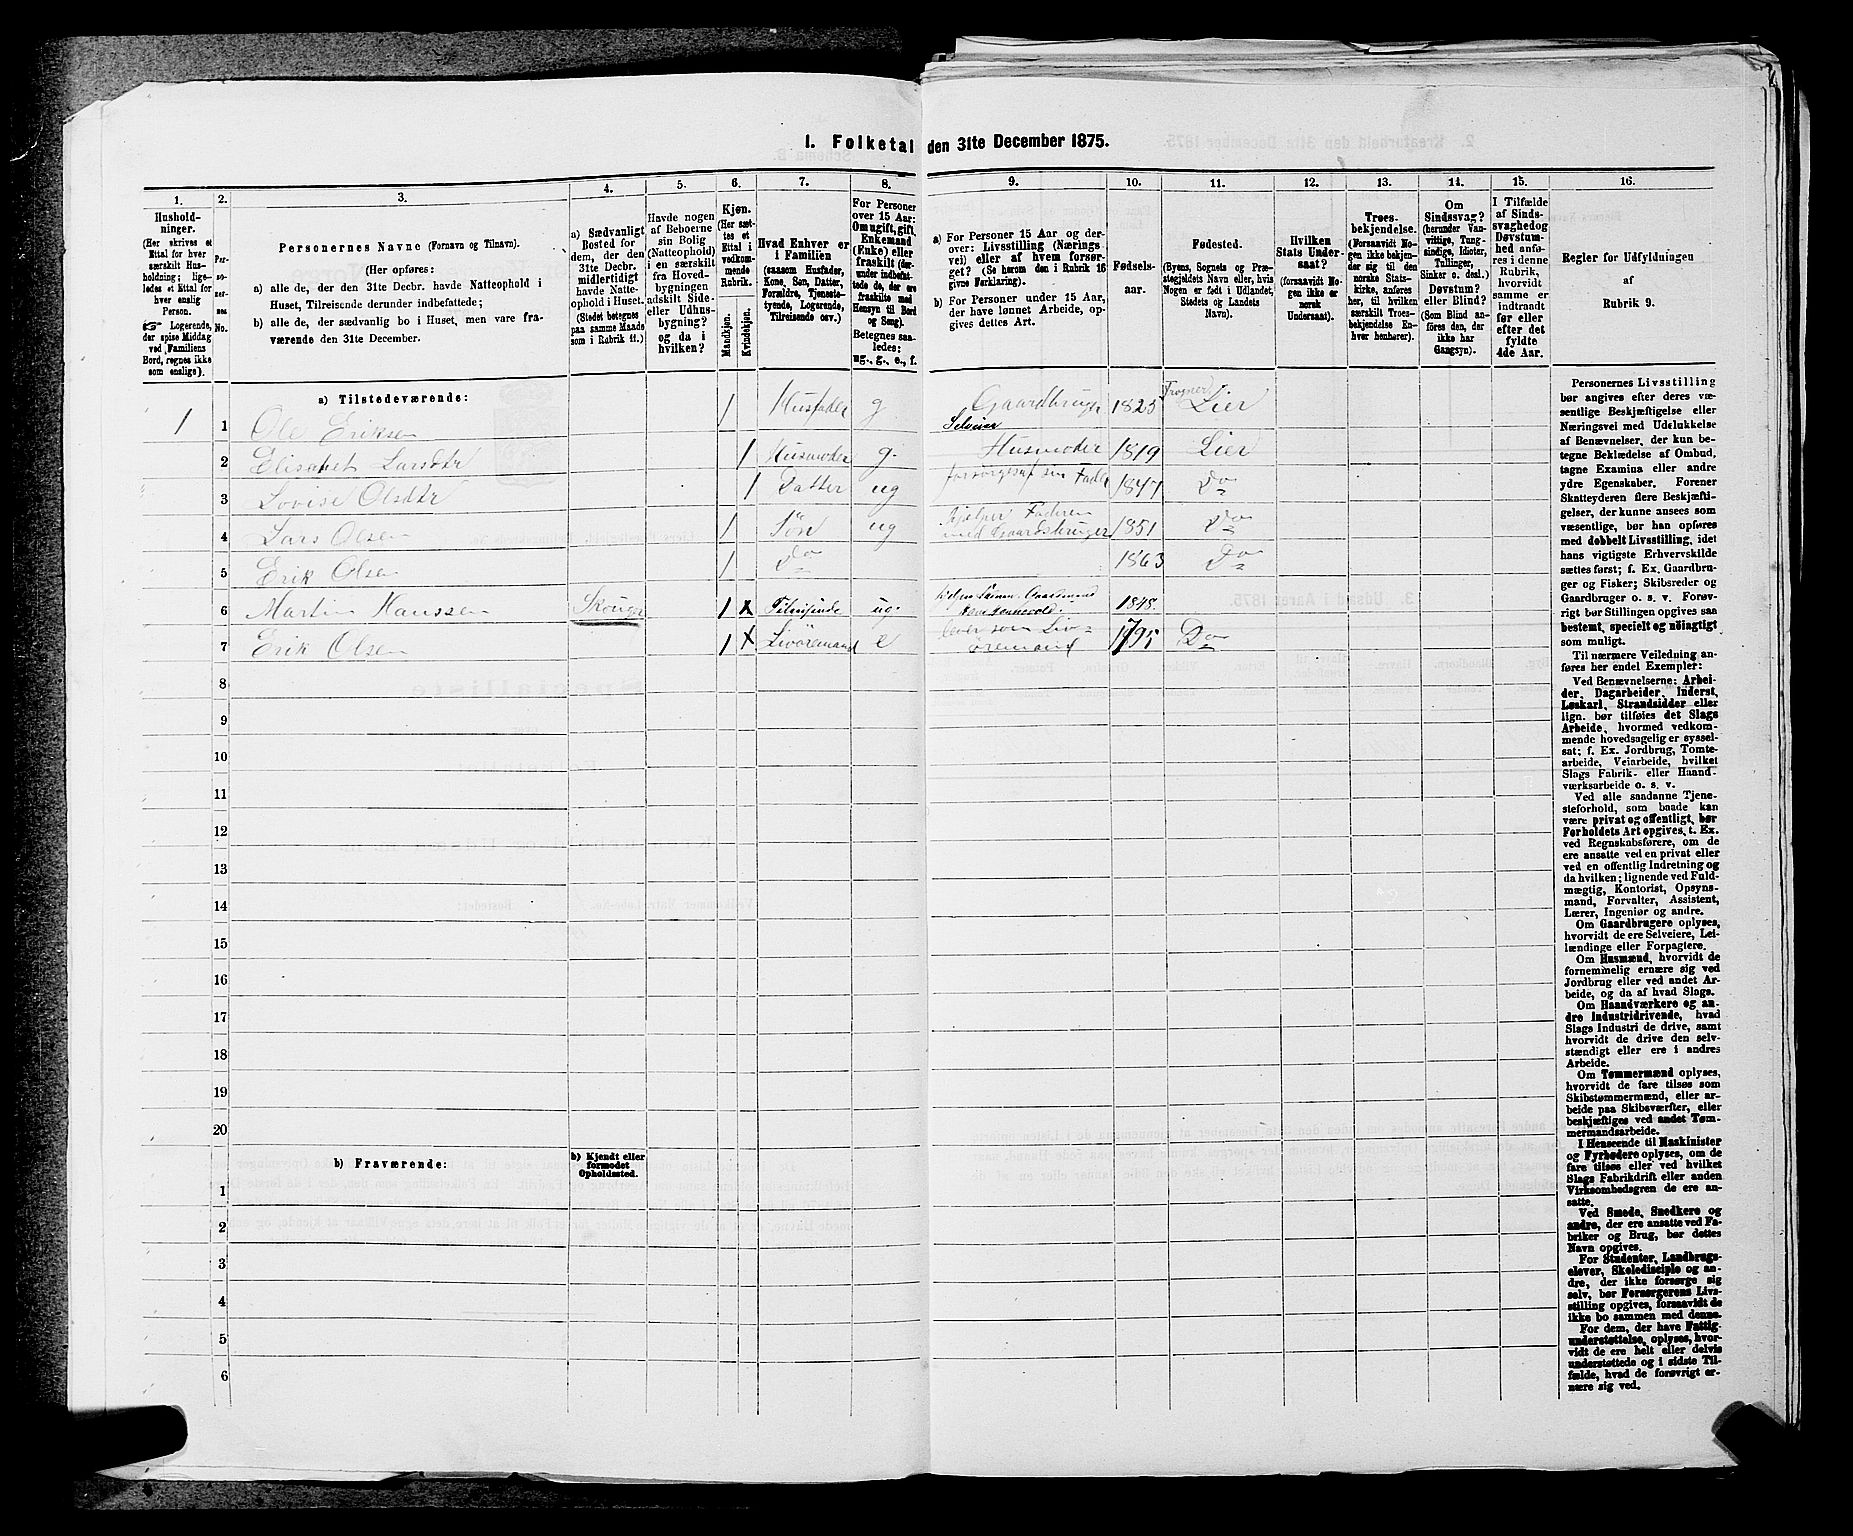 1. Folketal den 31te December 1875.
1.
Hushold-
ninger.
(Her skrives et
Ettal for hver
særskilt Hus-
holdning; lige-
ledes et Ettal for
hver enslig
Person.
☞ Logerende,
der spise Middag
ved Familiens
Bord, regnes ikke
som enslige).
2.
Per-
so-
ner-
nes
No.
3.
Personernes Navne (Fornavn og Tilnavn).
(Her opføres:
a) alle de, der den 31te Decbr. havde Natteophold i
Huset, Tilreisende derunder indbefattede;
b) alle de, der sædvanlig bo i Huset, men vare fra-
værende den 31te December.
4.
a) Sædvanligt
Bosted for
dem, der den
31te Decbr.
midlertidigt
havde Natte-
ophold i Huset.
(Stedet betegnes
paa samme Maade
som i Rubrik 11.)
5.
Havde nogen
af Beboerne
sin Bolig
(Natteophold)
i en særskilt
fra Hoved-
bygningen
adskilt Side-
eller Udhus-
bygning?
og da i
hvilken?
6.
Kjøn.
(Her sæt-
tes et
Ettal i
vedkom-
mende
Rubrik.
Mandkjøn.
Kvindekjøn.
7.
Hvad Enhver er
i Familien
(saasom Husfader,
Kone, Søn, Datter,
Forældre, Tjeneste-
tyende, Logerende,
Tilreisende osv.)
8.
For Personer
over 15 Aar:
Om ugift, gift,
Enkemand
(Enke) eller
fraskilt (der-
under indbefat-
tede de, der
ere fraskilte med
Hensyn til Bord
og Seng).
Betegnes saa-
ledes:
ug., g., e., f.
9.
a) For Personer 15 Aar og der-
over: Livsstilling (Nærings-
vei) eller af hvem forsør-
get? (Se herom den i Rubrik 16
givne Forklaring).
b) For Personer under 15 Aar,
der have lønnet Arbeide, op-
gives dettes Art.
10.
Fødsels-
aar.
11.
Fødested.
(Byens, Sognets og Præ-
stegjeldets Navn eller, hvis
Nogen er født i Udlandet,
Stedets og Landets
Navn).
12.
Hvilken
Stats Under-
saat?
(forsaavidt No-
gen ikke er
norsk
Undersaat).
13.
Troes-
bekjendelse.
(Forsaavidt No-
gen ikke bekjen-
der sig til den
norske Stats-
kirke, anføres
her, til hvilken
særskilt Troes-
bekjendelse En-
hver henhører).
14.
Om
Sindssvag?
(herunder Van-
vittige, Tung-
sindige, Idioter,
Tullinger,
Sinker o. desl.)
Døvstum?
eller Blind?
(Som Blind an-
føres den, der
ikke har
Gangsyn).
15.
I Tilfælde
af Sinds-
svaghed og
Døvstum-
hed anfø-
res i denne
Rubrik,
hvorvidt
samme er
indtraadt
før eller
efter det
fyldte
4de Aar.
16.
Regler for Udfyldningen
af
Rubrik 9.
a) Tilstedeværende:
1 1 Ole Eriksen 1 Husfader g Gaardbruger Selveier 1825 Frogner Lier
2 Elisabet Larsdtr 1 Husmoder g. Husmoder 1819 Lier
3 Lovise Olsdtr 1 Datter ug forsørges af sin Fader 1847 Do
4 Lars Olsen 1 Søn ug hjelper Faderen med Gaardsbruger 1851 Do
5 Erik Olsen 1 Do 1863 Do
6 Martin Hanssen Skouger 1 x Tilreisende ug. 1848.
7 Erik Olsen 1 x Livøremand e lever som Livøremand 1795 Do
8
9
10
11
12
13
14
15
16
17
18
19
20
b) Fraværende:
b) Kjendt eller
formodet
Opholdssted.
1
2
3
4
5
6
Personernes Livsstilling
bør angives efter deres væ-
sentlige Beskjæftigelse eller
Næringsvei med Udelukkelse
af Benævnelser, der kun be-
tegne Beklædelse af Ombud,
tagne Examina eller andre
ydre Egenskaber. Forener
Skatteyderen flere Beskjæfti-
gelser, der kunne ansees som
væsentlige, bør han opføres
med dobbelt Livsstilling, idet
hans vigtigste Erhvervskilde
sættes først; f. Ex. Gaardbru-
ger og Fisker; Skibsreder og
Gaardbruger o. s. v. Forøv-
rigt bør Stillingen opgives saa
bestemt, specielt og nöiagtigt
som muligt.
Til nærmere Veiledning an-
føres her endel Exempler:
Ved Benævnelserne: Arbei-
der, Dagarbeider, Inderst,
Løskarl, Strandsidder eller
lign. bør tilføies det Slags
Arbeide, hvormed vedkom-
mende hovedsagelig er syssel-
sat; f. Ex. Jordbrug, Tomte-
arbeide, Veiarbeide, hvilket
Slags Fabrik- eller Haand-
værksarbeide o. s. v.
Ved alle saadanne Tjene-
steforhold, som baade kan
være privat og offentligt, bør
Forholdets Art opgives, t. Ex.
ved Regnskabsførere, om de
ere ansatte ved en privat eller
ved en offentlig Indretning og
da hvilken; lignende ved Fuld-
mægtig, Kontorist, Opsyns-
mand, Forvalter, Assistent,
Lærer, Ingeniør og andre.
Om Gaardbrugere oplyses,
hvorvidt de ere Selveiere, Lei-
lændinge eller Forpagtere.
Om Husmænd, hvorvidt de
fornemmelig ernære sig ved
Jordbrug eller ved andet Ar-
beide, og da af hvad Slags.
Om Haandværkere og an-
dre Industridrivende, hvad
Slags Industri de drive, samt
hvorvidt de drive den selv-
stændigt eller ere i andres
Arbeide.
Om Tømmermænd oplyses,
hvorvidt de fare tilsøs som
Skibstømmermænd, eller ar-
beide paa Skibsværfter, eller
beskjæftiges ved andet Tøm-
mermandsarbeide.
I Henseende til Maskinister
og Fyrbødere oplyses, om de
fare tilsøs eller ved hvilket
Slags Fabrikdrift eller anden
Virksomhedsgren de ere an-
satte.
Ved Smede, Snedkere og
andre, der ere ansatte ved Fa-
briker og Brug, bør dettes
Navn opgives.
For Studenter, Landbrugs-
elever, Skoledisciple og an-
dre, der ikke forsørge sig
selv, bør Forsørgerens Livs-
stilling opgives, forsaavidt de
ikke bo sammen med denne.
For dem, der have Fattig-
understøttelse, oplyses, hvor-
vidt de ere helt eller delvis
understøttede og i sidste Til-
fælde, hvad de forøvrigt er-
nære sig ved.